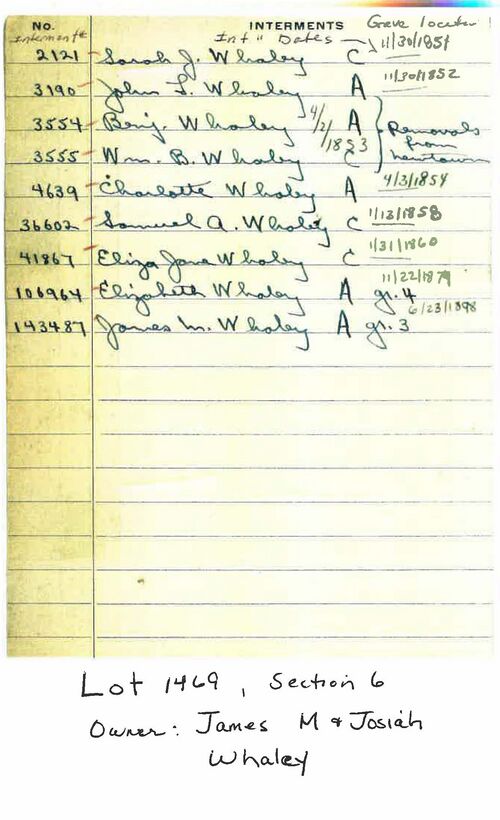 NO. INTERMENTS Grave locator
Interment # Int" Dates 11/30/1851
2121 Sarah J. Whaley C
11/30/1852
3190 John L. Whaley A
3554 Benj. Whaley 4/2/1853 A Removals from Newtown
3555 Wm. B. Whaley C
4/3/1854
4639 Charlotte Whaley A
36602 Samuel A. Whaley C 1/13/1858
41867 Eliza Jane Whaley C 1/31/1860
11/22/1879
106964 Elizabeth Whaley A gr. 4
6/23/1898
143487 James M. Whaley A gr. 3
Lot 1469, Section 6
Owner: James M & Josiah
Whaley